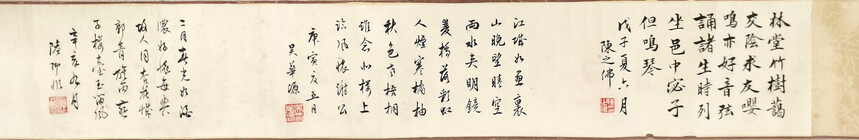 林堂竹樹藹
交陰求友嚶
鳴亦好音弦
誦諸生時列
坐邑中宓子
但鳴琴
戊子夏六月
陳之佛
江城如畫裏
山晚望晴空
兩水夾明鏡
雙橋落彩虹
人煙寒橘柚
秋色老梧桐
誰念北樓上
臨風懷謝公
庚寅夏五月
吳華源
二月春光如酒
濃好懷每與
故人同杏花城
郭青旗雨燕
子樓臺玉笛風
辛亥九月
陸抑非